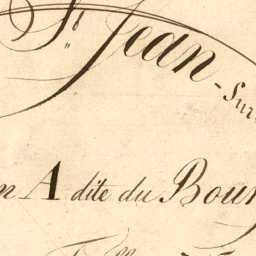 St. Jean - Sur
n A dite du Bour